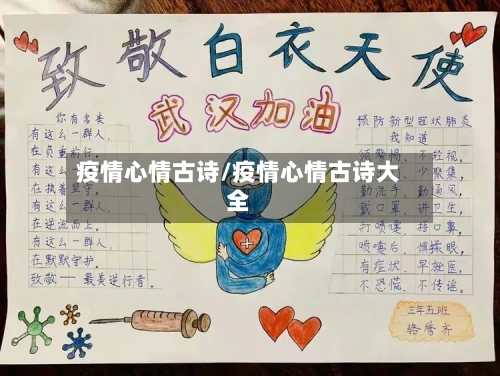 致敬白衣天使
武汉加油
你有名类
有这么一群人，
在负重前行。
有这么一群人，
在执着坚守。
有这么一群人，
在逆流而上。
有这么一群人，
在默默守护。
致敬——最美逆行者。
预防新型冠状肺炎
我知道
不轻视，
少聚集，
勤洗手、勤通风，
戴口罩、讲卫生，
打喷嚏、捂口鼻，
喷嚏后、慎揉眼，
有症状、早就医，
不恐慌、不传谣。
疫情心情古诗/疫情心情古诗大
全
三年五班